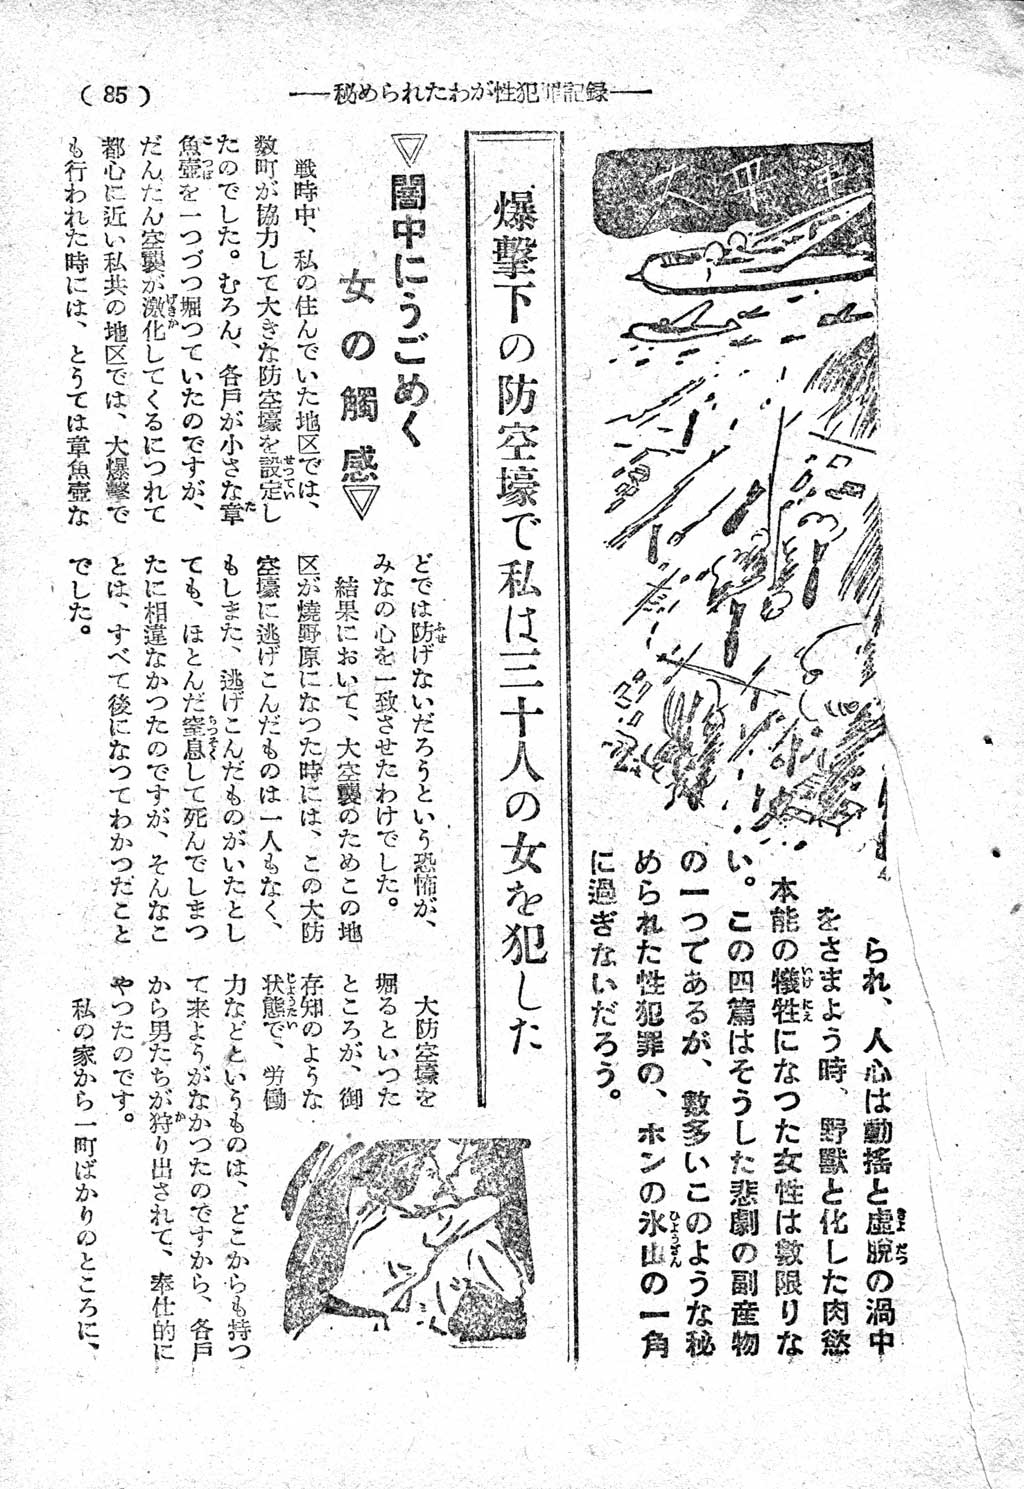 (85)
――秘められたわが性犯罪記録――
太平洋
られ、人心は動揺と虚脱の渦中
をさまよう時、野獣と化した肉慾
本能の犠牲になつた女性は数限りな
い。この四篇はそうした悲劇の副産物
の一つであるが、数多いこのような秘
められた性犯罪の、ホンの氷山の一角
に過ぎないだろう。
爆撃下の防空壕で私は三十人の女を犯した
▽闇中にうごめく
女の觸感▽
戦時中、私の住んでいた地区では、
数町が協力して大きな防空壕を設定し
たのでした。むろん、各戸が小さな章
魚壺を一つづつ堀つていたのですが、
だんだん空襲が激化してくるにつれて
都心に近い私共の地区では、大爆撃で
も行われた時には、とうては章魚壺な
どでは防げないだろうという恐怖が、
みなの心を一致させたわけでした。
結果において、大空襲のためこの地
区が焼野原になつた時には、この大防
空壕に逃げこんだものは一人もなく、
もしまた、逃げこんだものがいたとし
ても、ほとんだ窒息して死んでしまつ
たに相違なかつたのですが、そんなこ
とは、すべて後になつてわかつだこと
でした。
大防空壕を
堀るといつた
ところが、御
存知のような
状態で、労働
力などというものは、どこからも持つ
て来ようがなかつたのですから、各戸
から男たちが狩り出されて、奉仕的に
やつたのです。
私の家から一町ばかりのところに、